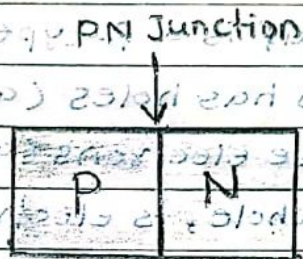 PN Junction
P N